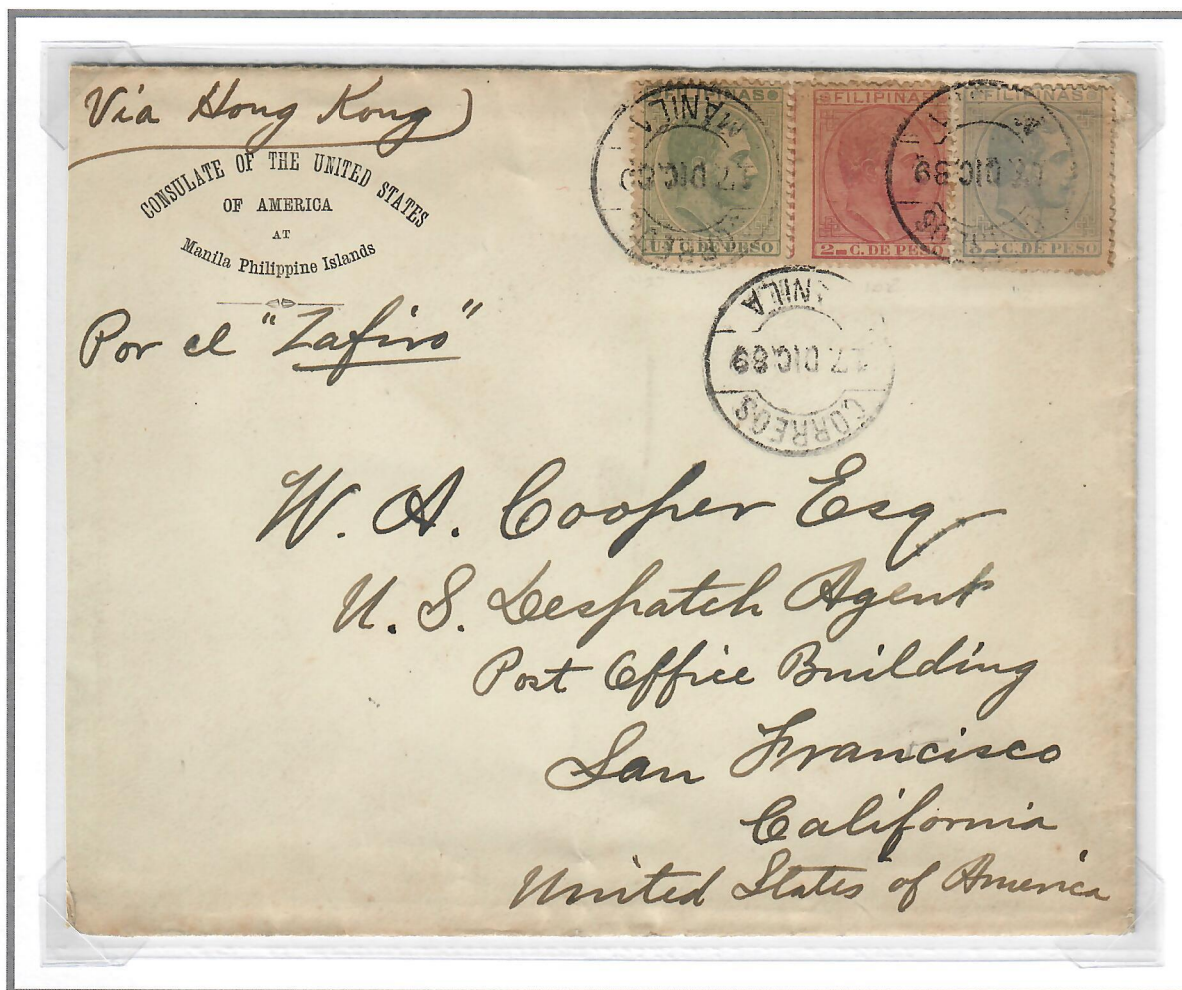 Via Hong Kong
CONSULATE OF THE UNITED STATES
OF AMERICA
AT
Manila Philippine Islands
Por el "Zafiro"
FILIPINAS
FILIPINAS
C. DE PESO
2 C. DE PESO
C. DE PESO
MANILA
17 DIC 89
DIC 89
MANILA
17 DIC 89
CORREOS
W. A. Cooper Esq
U. S. Despatch Agent
Post Office Building
San Francisco
California
United States of America